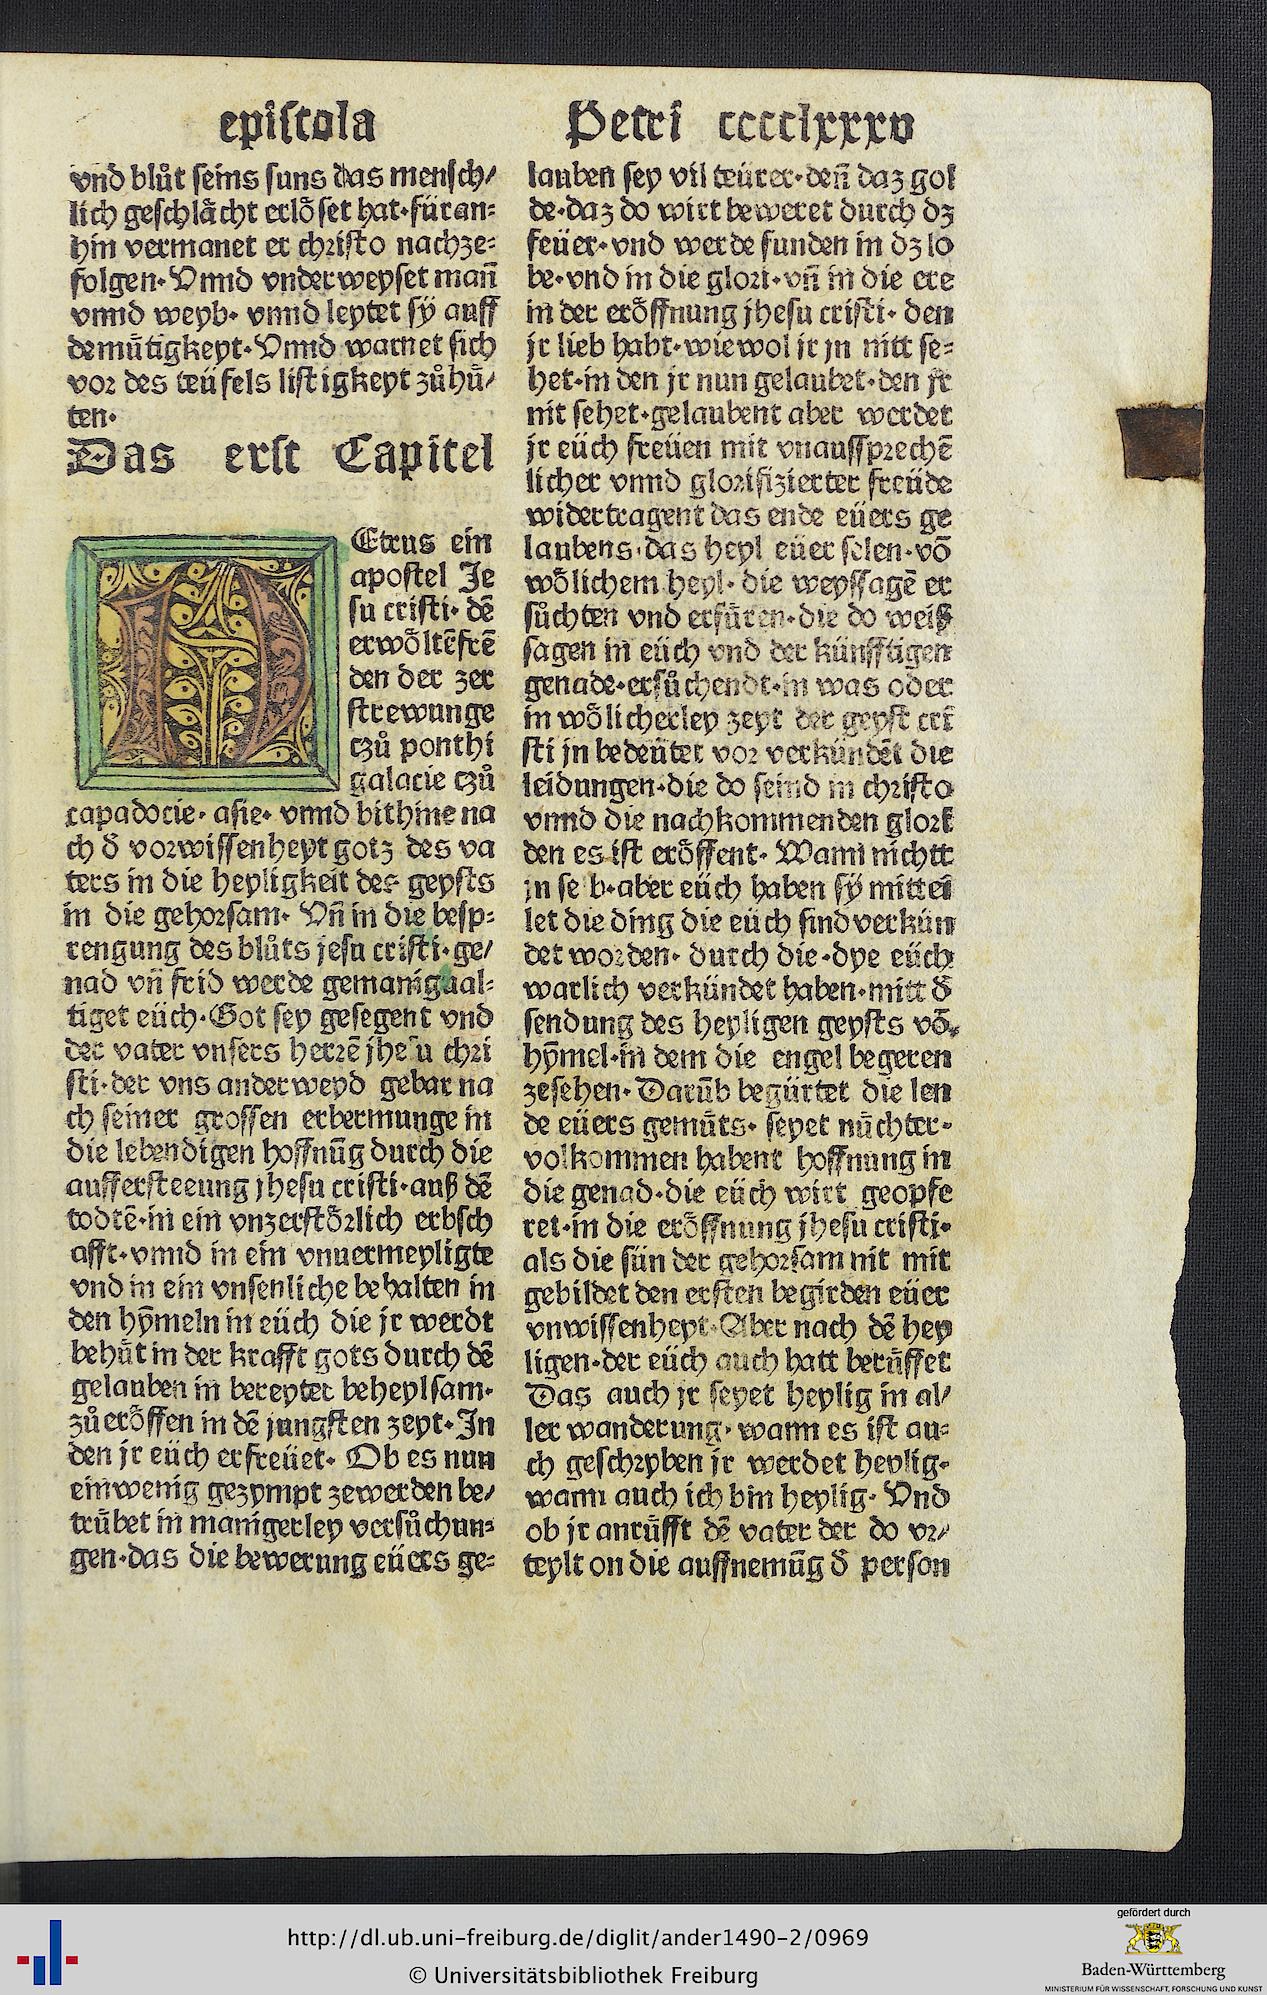 epistola
Petri ccccclxxxv
vnd blůt seins suns das mensch/
lich geschlächt erlöset hat·füran⸗
hin vermanet er christo nachze⸗
folgen·Vnnd vnderweyset man̄
vnnd weyb· vnnd leytet sÿ auff
demütigkeyt·Vnnd warnet sich
vor des teüfels listigkeyt zůhü/
ten·
Das erst Capitel
Etrus ein
apostel Je
su cristi· dē
erwöltēfrē
den der zer
strewunge
czů ponthi
galacie czů
capadocie· asie· vnnd bithine na
ch δ vorwissenheyt gotz des va
ters in die heyligkeit des geysts
in die gehorsam· Vn̄ in die besp⸗
rengung des blůts jesu cristi·ge/
nad vn̄ frid werde gemanigual⸗
tiget eüch·Got sey gesegent vnd
der vater vnsers herrē jhesu chri
sti·der vns anderweyd gebar na
ch seiner grossen erbermunge in
die lebendigen hoffnūg durch die
aufferfteeung jhesu cristi·auß dē
todtē·in ein vnzerstörlich erbsch
afft·vnnd in ein vnuermeyligte
vnd in ein vnsenliche behalten in
den hȳmeln in eüch die jr werdt
behüt in der krafft gots durch dē
gelauben in bereyter beheylsam·
zůeröffen in dē jungsten zeyt·In
den jr eüch erfreüet· Ob es nun
einwenig gezympt zewerden be/
trübet in manigerley versůchun⸗
gen·das die bewerung eüers ge⸗
lauben sey vil teürer·den̄ daz gol
de·daz do wirt beweret durch dz
feüer·vnd werde funden in dz lo
be·vnd in die glori·vn̄ in die ere
in der eröffnung jhesu cristi· den
jr lieb habt·wiewol jr jn nitt se⸗
het·in den jr nun gelaubet·den jr
nit sehet·gelaubent aber werdet
jr eüch freüen mit vnaussprechē
licher vnnd glorifizierter freüde
widertragent das ende eüers ge
laubens·das heyl eüer selen·vō
wölichem heyl· die weyssagē er
sůchten vnd erfüren·die do weiß
sagen in eüch vnd der künfftigen
genade·ersůchendt·in was oder
in wölicherley zeyt der geyst cri
sti jn bedeütet vor verkündēt die
leidungen·die do seind in christo
vnnd die nachkommenden glori
den es ist eröffent· Wann nichtt
jn se b·aber eüch haben sÿ mittei
let die ding die eüch sind verkün
det worden· durch die·dye eüch
warlich verkündet haben·mitt δ
sendung des heyligen geysts vō
hȳmel·in dem die engel begeren
zesehen· Darūb begürtet die len
de eüers gemüts· seyet nüchter·
volkommen habent hoffnung in
die genad·die eüch wirt geopfe
ret·in die eröffnung jhesu cristi·
als die sün der gehorsam nit mit
gebildet den ersten begirden eüer
vnwissenheyt·Aber nach dē hey
ligen·der eüch auch hatt berüffet
Das auch jr seyet heylig in al/
ler wanderung· wann es ist au⸗
ch geschryben jr werdet heylig·
wann auch ich bin heylig· Vnd
ob jr anrüfft dē vater der do vr/
teylt on die auffnemūg δ person
http://dl.ub.uni-freiburg.de/diglit/ander1490-2/0969
© Universitätsbibliothek Freiburg
gefördert durch
Baden-Württemberg
MINISTERIUM FÜR WISSENSCHAFT, FORSCHUNG UND KUNST